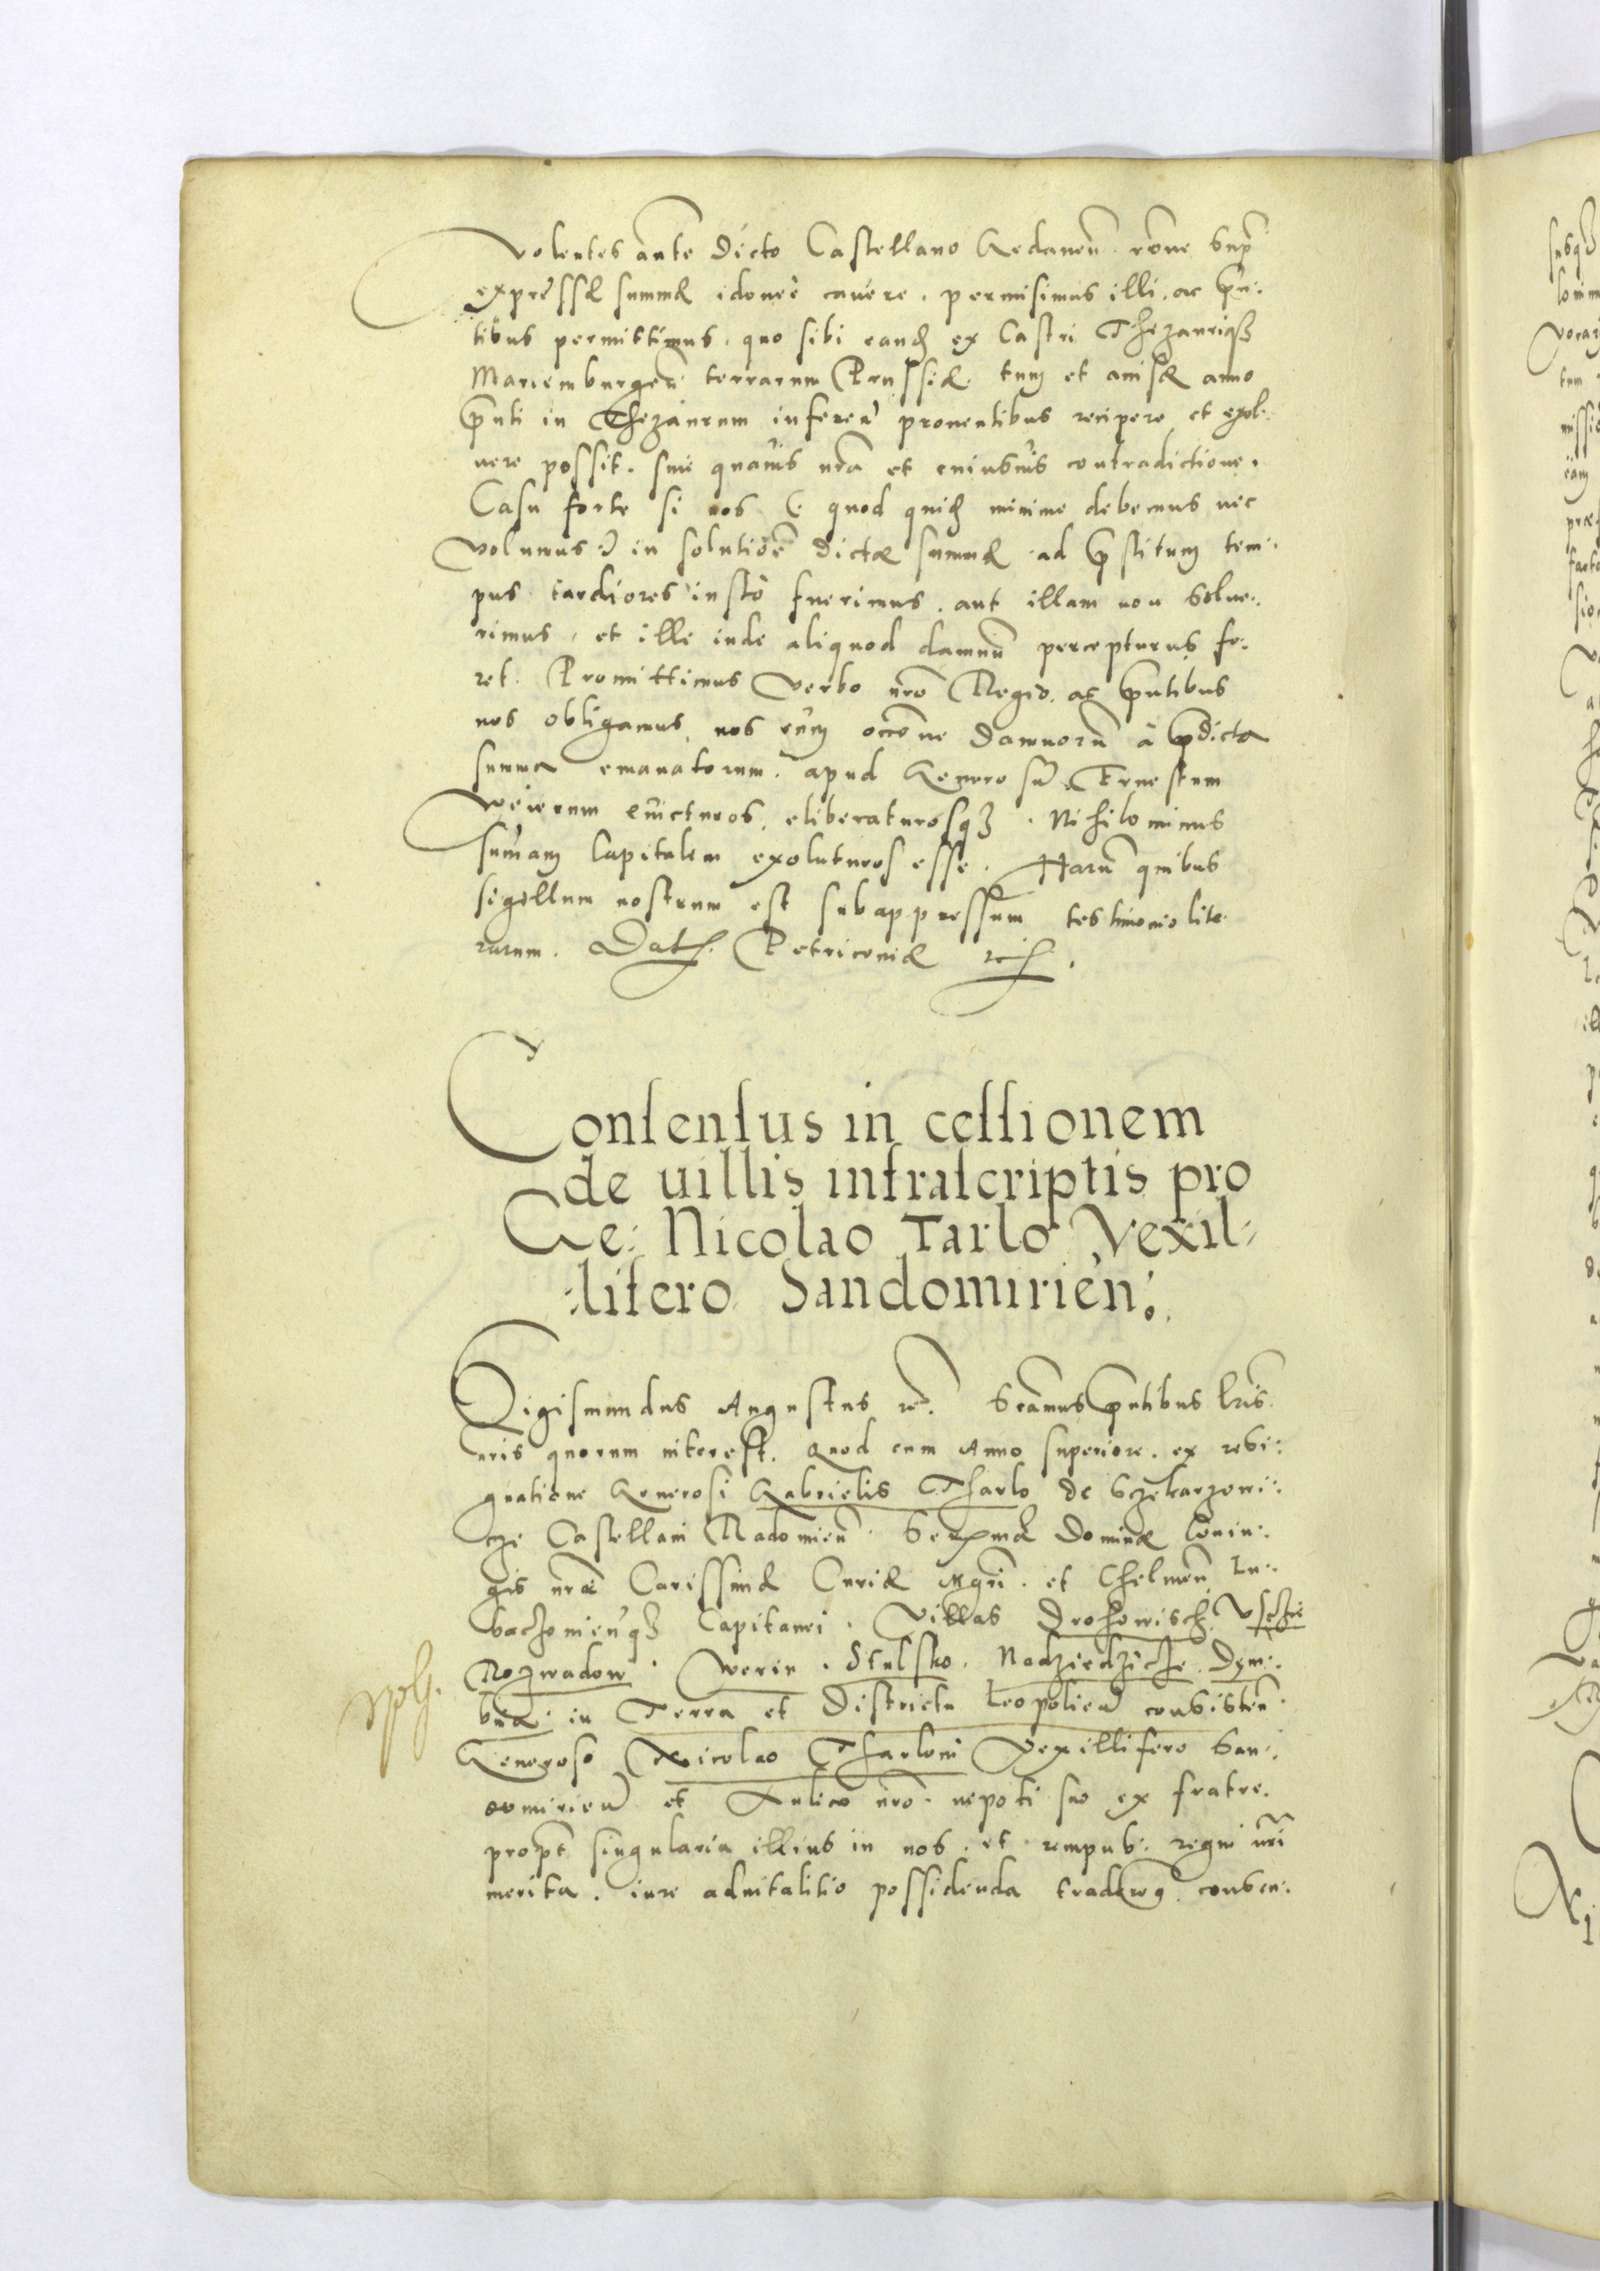 Volentes ante dicto Castellano Gedaneñ. rõne sup̃
expressæ summæ idonee cavere. permisimus illi. ac p̃n:
tibus permittimus. quo sibi eand ex Castri Thezauriqʒ
Mariemburgeñ terrarum Prussiæ. tum et
p̃nti in Thezaurum infereñ proventibus recipere et exol:
vere possit. sine quavis nr̃a et cuiusvis contradictione.
Casu forte si nos (: quod quid minime debemus nec
volumus :) in solutiõe dictæ summæ ad p̃stitum tem:
pus tardiores fuerimus. aut illam non solve:
rimus, et ille inde aliquod damnũ percepturus fo:
ret. Promittimus Verbo nr̃o Regio. ac p̃ntibus
nos obligamus, nos eum oc̃c̃ne damnorũ à p̃dicta
summa emanatorum. apud Generosũ Ernestum
Weierum evicturos, eliberaturosqʒ. Nihilominus
sum̃am Capitalem exoluturos esse. Harũ quibus
sigillum nostrum est subappressum testimonio lite:
rarum. Dat. Petricoviæ

Consensus in cessionem
de uillis infrascriptis pro
Ge: Nicolao Tarlo Vexil:
:lifero Sandomirieñ:

Sigismundus Augustus rc̃. Sc̃amus p̃ntibus lr̃is
nr̃is quorum interest. Quod cum Anno superiore. ex resi:
gnatione Generosi Gabrielis Tharlo de Sczekarzowi:
cze Castellani Radomieñ. Serm̃æ Dominæ Coniu:
gis nr̃æ Carissimæ Curiæ Mgr̃i. et Chelmeñ Lu:
bachovieñqʒ Capitanei. Villas Drohowisch, Uscze
Rozwadow. Werin. Stulsko. Nadziedzicze. Dym:
bna. in Terra et Districtu Leopolieñ consisteñ.
Generoso Nicolao Tharloni Vexillifero San:
domirieñ et Aulico nr̃o. nepoti suo ex fratre.
propt̃ singularia illius in nos. et rempub: regni nr̃i
merita. iure aduitalitio possidenda conseñ: